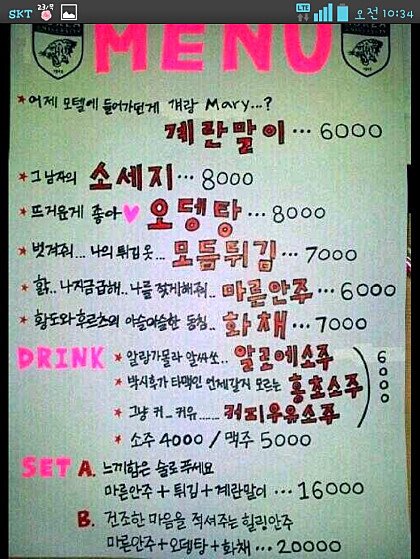 SKT 오전 10:34
MENU
* 어제 모텔에 들어가던게 걔랑 Mary...?
계란말이 ... 6000
* 그 남자의 소세지 ... 8000
* 뜨거운게 좋아 ♥ 오뎅탕 ... 8000
* 벗겨줘... 나의 튀김옷... 모듬튀김 ... 7000
* 핡.. 나지금급해.. 나를 젖게해줘.. 마른안주 ... 6000
* 황도와 후르츠의 아슬아슬한 동침.. 화채 ... 7000
DRINK * 알랑가몰라 알싸쏘.. 알로에소주
* 박시후가 타맥인 언제갈지 모르는 홍초소주
* 그냥 커.. 커유...... 커피우유소주
6000
* 소주 4000 / 맥주 5000
SET A. 느끼함은 술로 푸세요
마른안주 + 튀김 + 계란말이 ... 16000
B. 건조한 마음을 적셔주는 힐링안주
마른안주 + 오뎅탕 + 화채 ... 20000